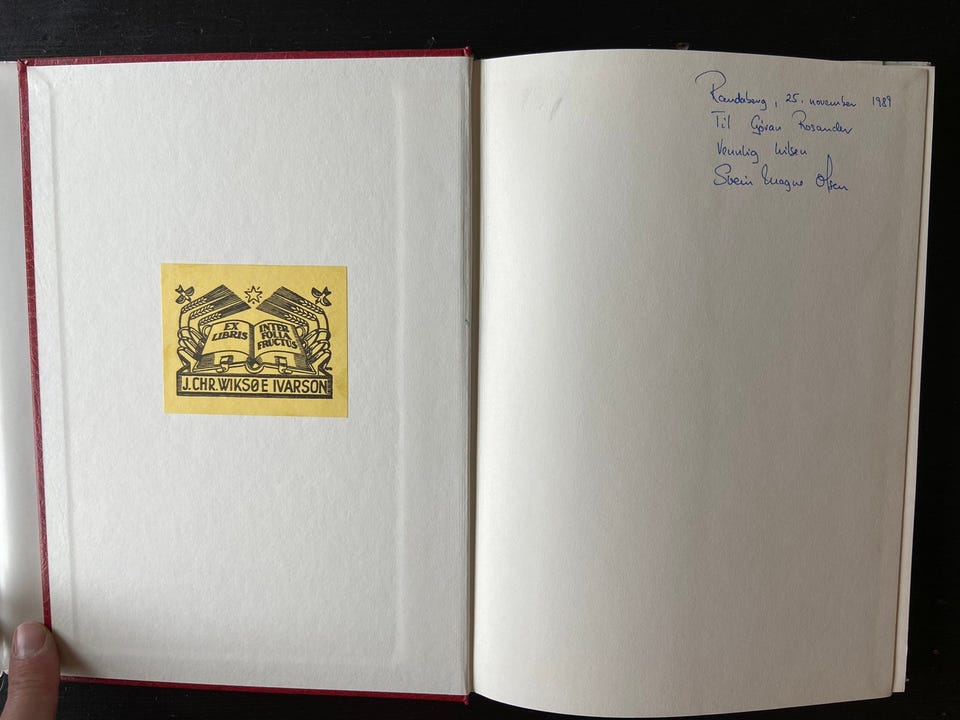 EX
LIBRIS
INTER
FOLIA
FRUCTUS
J. CHR. WIKSØE IVARSON
Randaberg, 25. november 1989
Til Göran Rosander
Vennlig hilsen
Svein Magne Olsen